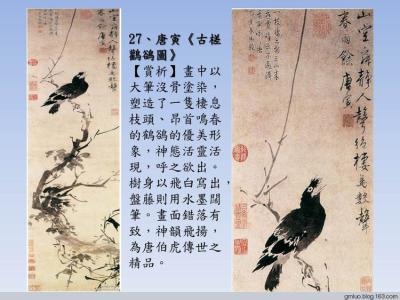 27、唐寅《古槎
鸜鵒圖》
【賞析】畫中以
大筆沒骨塗染，
塑造了一隻棲息
枝頭、昂首鳴春
的鸜鵒的優美形
象，神態活靈活
現，呼之欲出。
樹身以飛白寫出，
盤藤則用水墨闊
筆。畫面錯落有
致，神韻飛揚，
為唐伯虎傳世之
精品。
山空寂靜人聲絕棲鳥數聲
春雨餘 唐寅
gmluo.blog.163.com